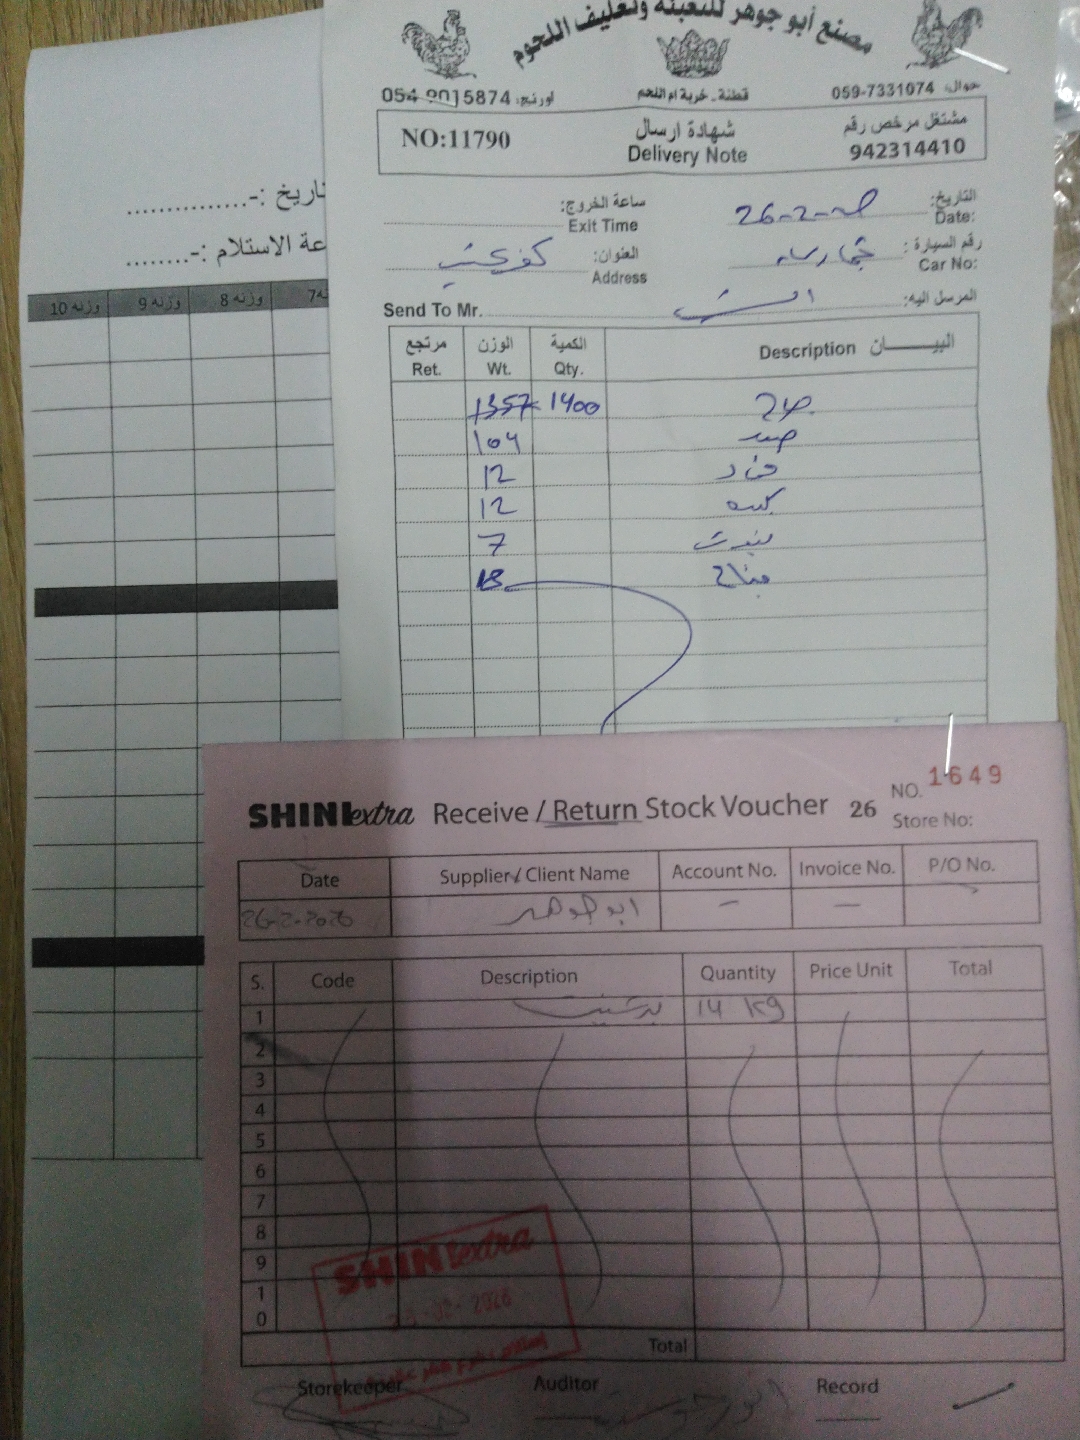 مصنع أبو جوهر للتعبئة وتغليف اللحوم
جوال: 059-7331074
قطنة - خربة ام اللحم
اورنج: 054-9015874
مشتغل مرخص رقم
942314410
شهادة ارسال
Delivery Note
NO:11790
التاريخ:
Date:
26-2-
ساعة الخروج:
Exit Time
رقم السيارة :
Car No:
العنوان:
Address
كفر عقب
المرسل اليه:
Send To Mr.
البيـــــان Description
الكمية
Qty.
الوزن
Wt.
مرتجع
Ret.
1400 1357
104
12
12
7
جناح 18
تاريخ :-...............
عة الاستلام :-........
وزنه 8 وزنه 9 وزنه 10
SHINI extra Receive / Return Stock Voucher 26
NO. 1649
Store No:
Date Supplier / Client Name Account No. Invoice No. P/O No.
26-2-2026 ابو جوهر - -
S. Code Description Quantity Price Unit Total
1 14 kg
2
3
4
5
6
7
8
9
10
Total
SHINI extra
2026
Storekeeper Auditor Record